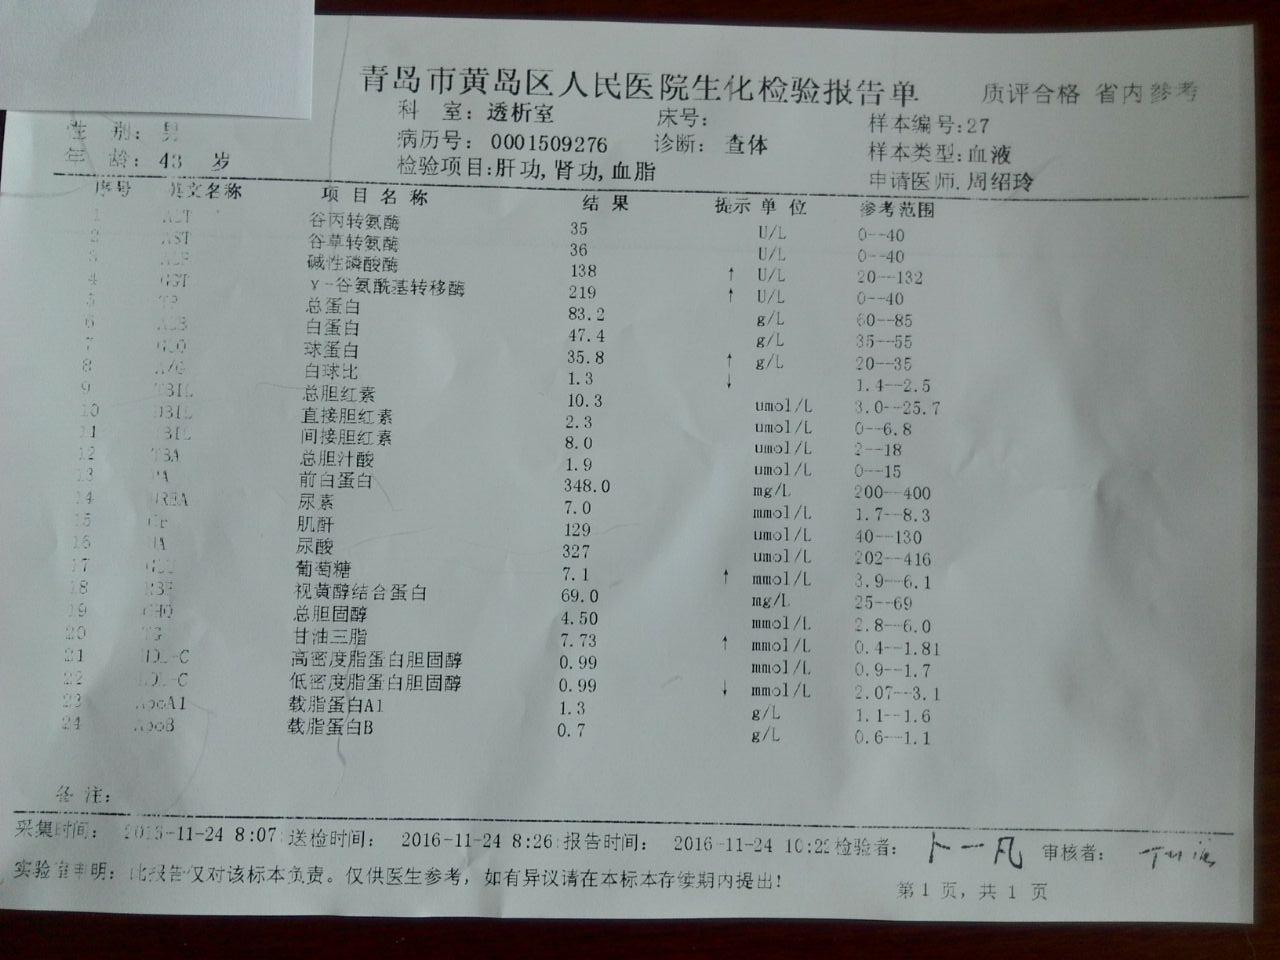 青岛市黄岛区人民医院生化检验报告单 质评合格 省内参考
科 室: 透析室 床号: 样本编号:27
性 别: 男 病历号: 0001509276 诊断: 查体 样本类型:血液
年 龄: 43 岁 检验项目:肝功,肾功,血脂 申请医师.周绍玲
序号 英文名称 项目名称 结果 提示 单位 参考范围
1 ALT 谷丙转氨酶 35 U/L 0--40
2 AST 谷草转氨酶 36 U/L 0--40
3 ALP 碱性磷酸酶 138 ↑ U/L 20--132
4 GGT γ-谷氨酰基转移酶 219 ↑ U/L 0--40
5 TP 总蛋白 83.2 g/L 60--85
6 ALB 白蛋白 47.4 g/L 35--55
7 GLO 球蛋白 35.8 ↑ g/L 20--35
8 A/G 白球比 1.3 ↓ 1.4--2.5
9 TBIL 总胆红素 10.3 umol/L 3.0--25.7
10 DBIL 直接胆红素 2.3 umol/L 0--6.8
11 IBIL 间接胆红素 8.0 umol/L 2--18
12 TBA 总胆汁酸 1.9 umol/L 0--15
13 PA 前白蛋白 348.0 mg/L 200--400
14 UREA 尿素 7.0 mmol/L 1.7--8.3
15 Cr 肌酐 129 umol/L 40--130
16 UA 尿酸 327 umol/L 202--416
17 GLU 葡萄糖 7.1 ↑ mmol/L 3.9--6.1
18 RBP 视黄醇结合蛋白 69.0 mg/L 25--69
19 CHO 总胆固醇 4.50 mmol/L 2.8--6.0
20 TG 甘油三脂 7.73 ↑ mmol/L 0.4--1.81
21 HDL-C 高密度脂蛋白胆固醇 0.99 mmol/L 0.9--1.7
22 LDL-C 低密度脂蛋白胆固醇 0.99 ↓ mmol/L 2.07--3.1
23 ApoA1 载脂蛋白A1 1.3 g/L 1.1--1.6
24 ApoB 载脂蛋白B 0.7 g/L 0.6--1.1
备 注:
采集时间: 11-24 8:07 送检时间: 2016-11-24 8:26 报告时间: 2016-11-24 10:22 检验者: 卜一凡 审核者:
实验室申明: 此报告仅对该标本负责。仅供医生参考, 如有异议请在本标本存续期内提出!
第 1 页, 共 1 页